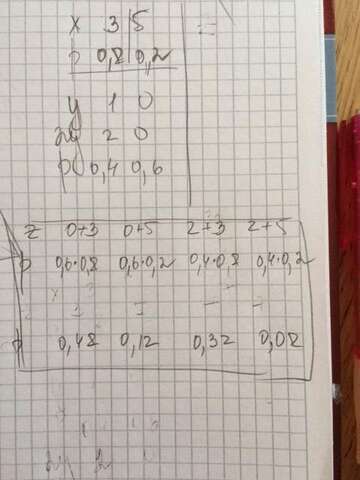 x 3 5
p 0,8 0,2
y 1 0
2y 2 0
p 0,4 0,6
z 0+3 0+5 2+3 2+5
p 0,6·0,8 0,6·0,2 0,4·0,8 0,4·0,2
p 0,48 0,12 0,32 0,08